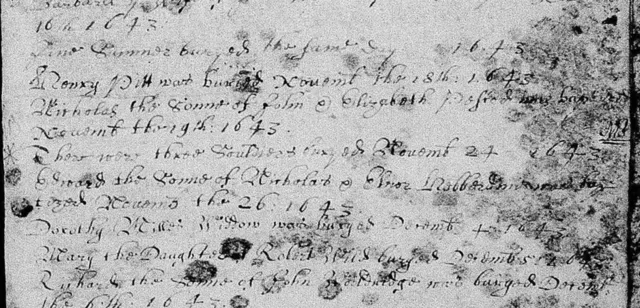 16th 1643
Sumner buryed the same day 1643
Henry Pitt was buried Novemb the 18th: 1643
Nicholas the Sonne of John & Elizabeth was baptized
Novemb the 19th: 1643.
There were three Souldiers buryed Novemb 24 1643
Edward the Sonne of Nicholas & Elnor
tized Novemb the 26 1643.
Dorothy Widow was buryed Decemb 4 1643
Mary the Daughter of Robert buryed Decemb 5
Richard the Sonne of John was buryed Decemb
the 6th. 1643.